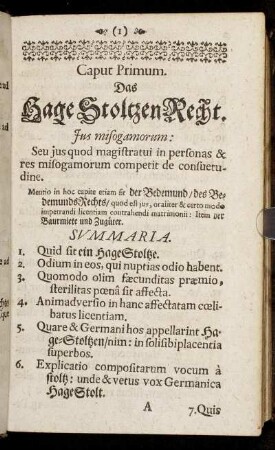 (1)
Caput Primum.
Das
Hage Stoltzen Recht.
Jus misogamorum:
Seu jus quod magistratui in personas &
res misogamorum competit de consuetu-
dine.
Mentio in hoc capite etiam fit der Bedemund/ des Be-
demunds Rechts/ quod est jus, oraliter & certo modo
impetrandi licentiam contrahendi matrimonii: Item der
Baurmiete und Zugüter.
SVMMARIA.
1. Quid sit ein HageStoltze.
2. Odium in eos, qui nuptias odio habent.
3. Quomodo olim fæcunditas præmio,
sterilitas pœnâ sit affecta.
4. Animadversio in hanc affectatam cœli-
batus licentiam.
5. Quare & Germani hos appellarint Ha-
ge-Stoltzen/nim: in solisibiplacentia
superbos.
6. Explicatio compositarum vocum à
stoltz: unde & vetus vox Germanica
HageStolt.
A 7. Quis